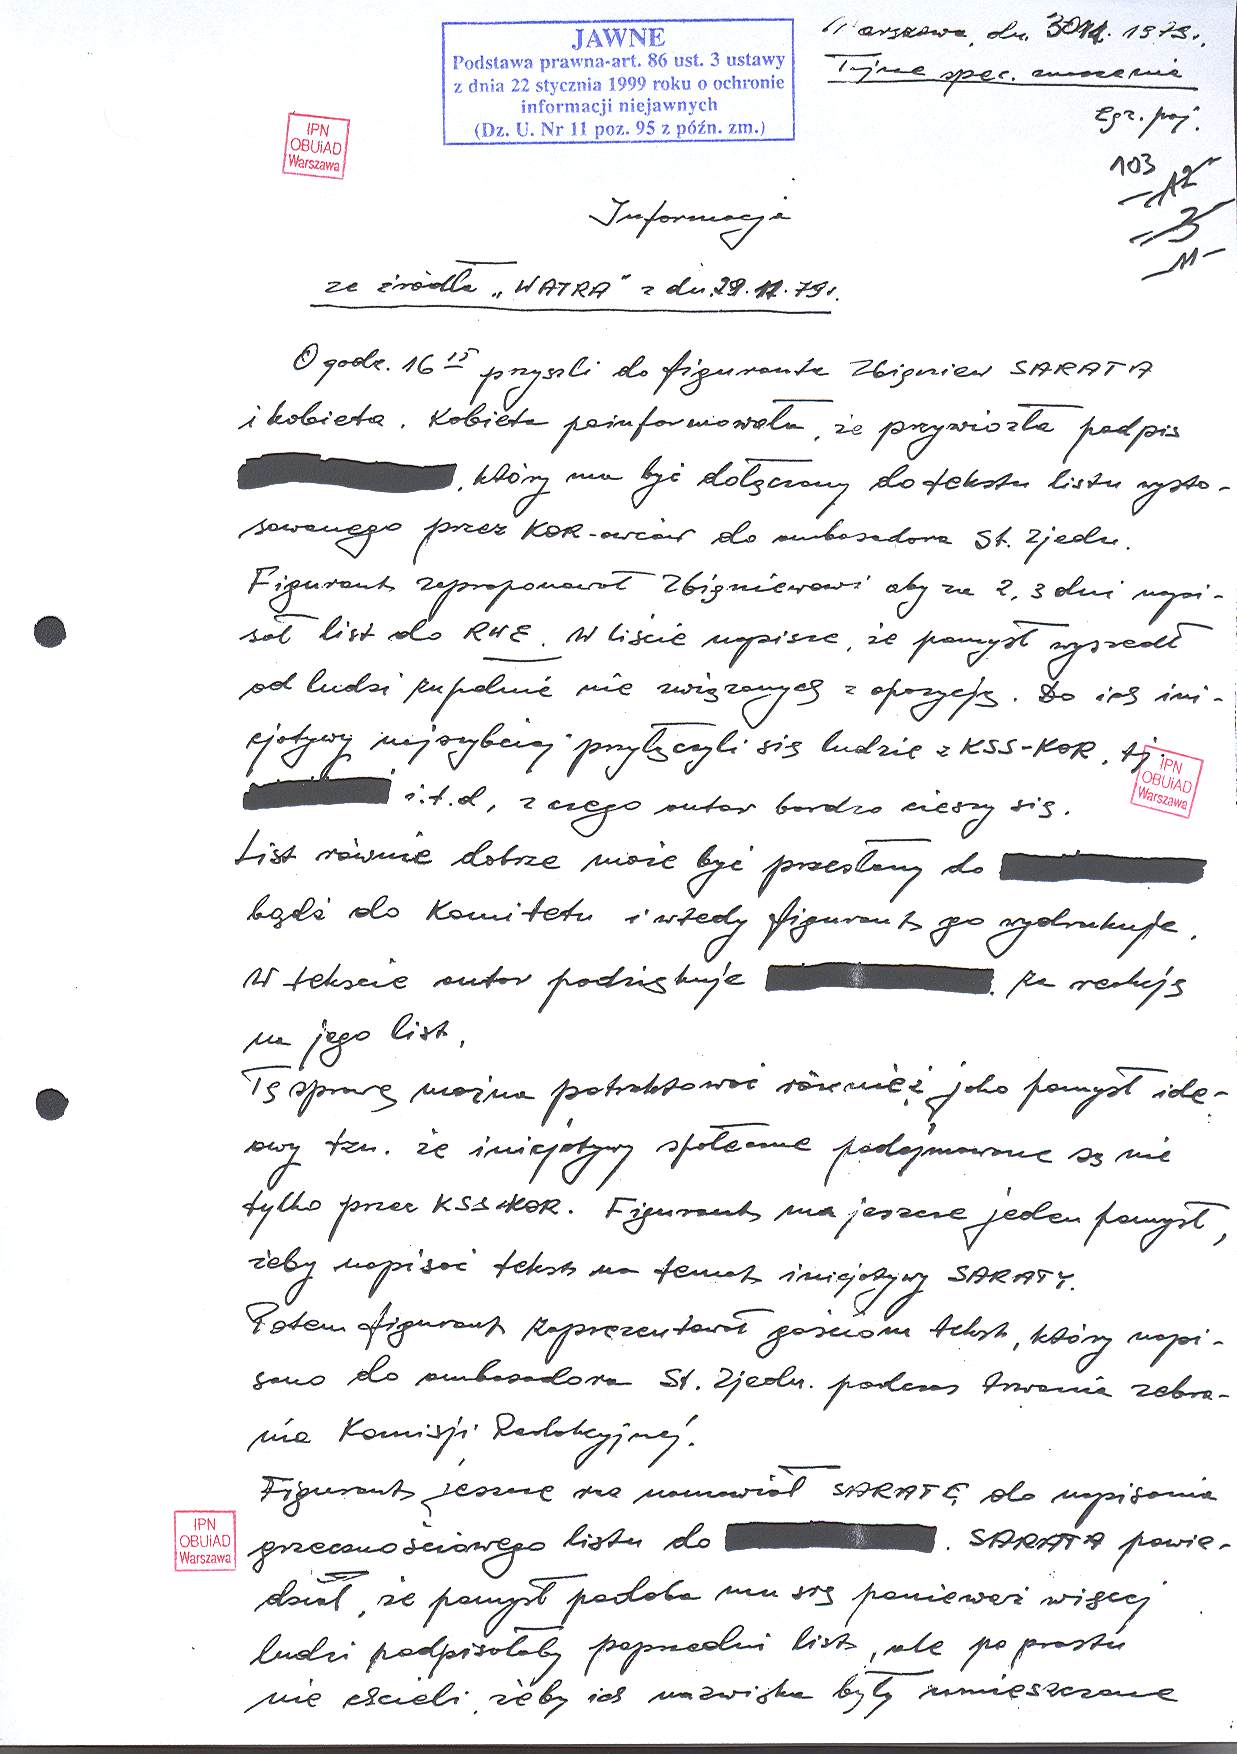 JAWNE
Podstawa prawna-art. 86 ust. 3 ustawy
z dnia 22 stycznia 1999 roku o ochronie
informacji niejawnych
(Dz. U. Nr 11 poz. 95 z późn. zm.)
Warszawa, dn. 1979r.
Tajne spec. znaczenia
Egz. poj.
IPN
OBUiAD
Warszawa
103
Informacja
ze źródła „WATRA" z dn. 29.11.79r.
O godz. 16 15 przyszli do figuranta Zbigniew SARATA
i kobieta. Kobieta poinformowała, że przywiozła podpis
, który ma być dołączony do tekstu listu wysto-
sowanego przez KOR-owców do ambasadora St. Zjedn.
Figurant zaproponował Zbigniewowi aby za 2, 3 dni napi-
sał list do RWE. W liście napisze, że pomysł wyszedł
od ludzi zupełnie nie związanych z opozycją. Do ich ini-
cjatywy najszybciej przyłączyli się ludzie z KSS-KOR, tj.
i.t.d, z czego autor bardzo cieszy się.
IPN
OBUiAD
Warszawa
List równie dobrze może być przesłany do
bądź do Komitetu i wtedy figurant go wydrukuje.
W tekście autor podziękuje za reakcję
na jego list.
Tę sprawę można potraktować również jako pomysł ide-
owy tzn. że inicjatywy społeczne podejmowane są nie
tylko przez KSS-KOR. Figurant ma jeszcze jeden pomysł,
żeby napisać tekst na temat inicjatywy SARATY.
Potem figurant zaprezentował gościom tekst, który napi-
sano do ambasadora St. Zjedn. podczas trwania zebra-
nia Komisji Redakcyjnej.
Figurant jeszcze raz namawiał SARATĘ do napisania
grzecznościowego listu do . SARATA powie-
IPN
OBUiAD
Warszawa
dział, że pomysł podoba mu się ponieważ więcej
ludzi podpisałoby poprzedni list, ale po prostu
nie chcieli, żeby ich nazwiska były umieszczone